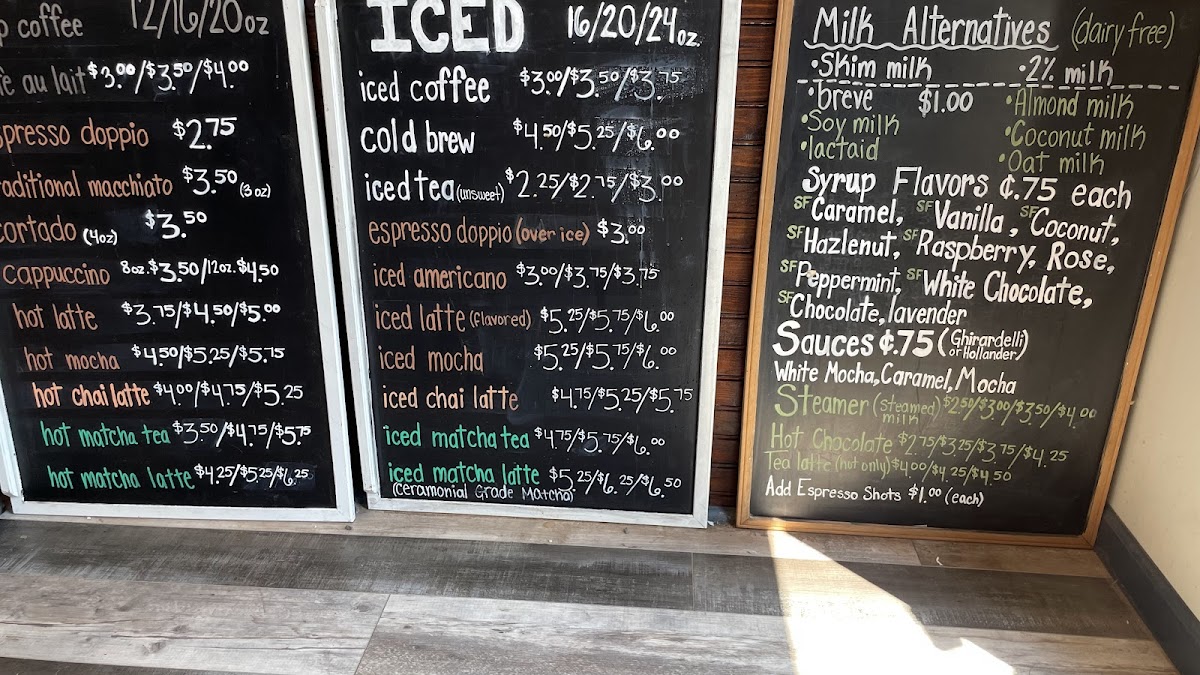 p coffee 12/16/20oz
fe au lait $3.00/$3.50/$4.00
spresso doppio $2.75
raditional macchiato $3.50 (3 oz)
cortado (4oz) $3.50
cappuccino 8oz. $3.50/12oz. $4.50
hot latte $3.75/$4.50/$5.00
hot mocha $4.50/$5.25/$5.75
hot chai latte $4.00/$4.75/$5.25
hot matcha tea $3.50/$4.75/$5.75
hot matcha latte $4.25/$5.25/$6.25
ICED 16/20/24oz.
iced coffee $3.00/$3.50/$3.75
cold brew $4.50/$5.25/$6.00
iced tea (unsweet) $2.25/$2.75/$3.00
espresso doppio (over ice) $3.00
iced americano $3.00/$3.75/$3.75
iced latte (Flavored) $5.25/$5.75/$6.00
iced mocha $5.25/$5.75/$6.00
iced chai latte $4.75/$5.25/$5.75
iced matcha tea $4.75/$5.75/$6.00
iced matcha latte $5.25/$6.25/$6.50
(Ceramonial Grade Matcha)
Milk Alternatives (dairy free)
•Skim milk •2% milk
•breve $1.00 •Almond milk
•Soy milk •Coconut milk
•lactaid •Oat milk
Syrup Flavors ¢.75 each
SF Caramel, SF Vanilla, SF Coconut,
SF Hazlenut, SF Raspberry, Rose,
SF Peppermint, SF White Chocolate,
SF Chocolate, lavender
Sauces ¢.75 (Ghirardelli or Hollander)
White Mocha, Caramel, Mocha
Steamer (Steamed milk) $2.50/$3.00/$3.50/$4.00
Hot Chocolate $2.75/$3.25/$3.75/$4.25
Tea latte (hot only) $4.00/$4.25/$4.50
Add Espresso Shots $1.00 (each)